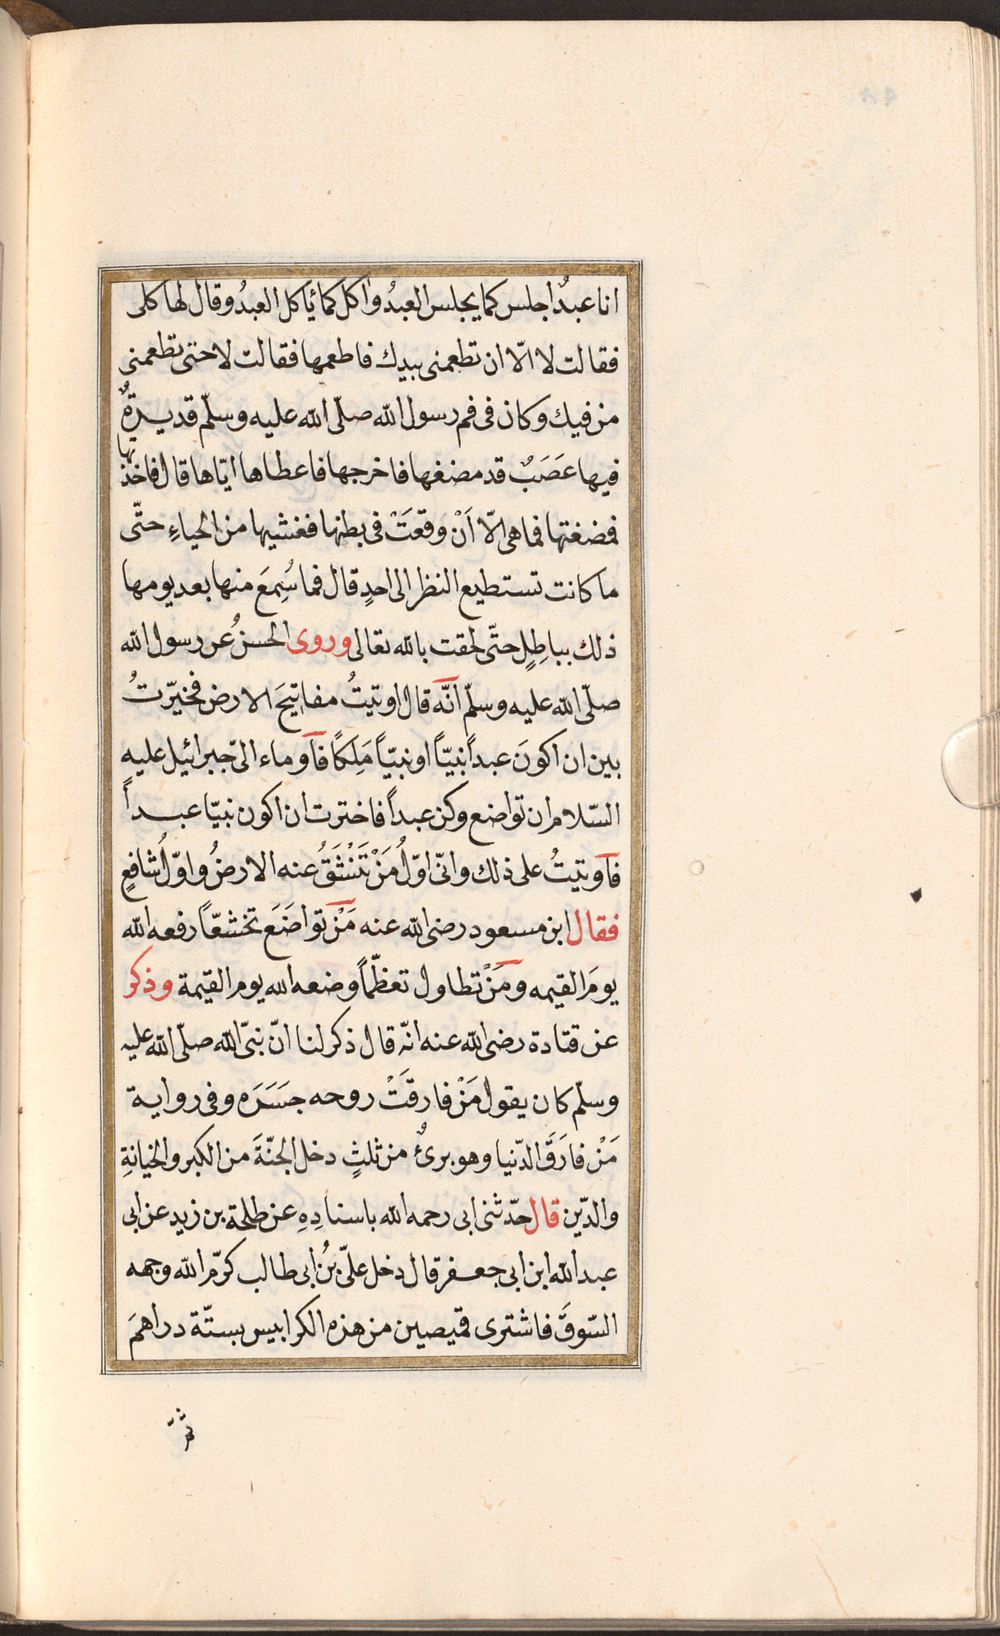 انا عبدٌ اجلس كما يجلس العبدُ واٰكل كما ئاكل العبدُ وقال لها كلى
فقالت لا الّا ان تطعمنى بيدك فاطعمها فقالت لا حتى تطعمنى
من فيك وكان فى فم رسول الله صلّى الله عليه وسلّم قديرةٌ
فيها عَصَبٌ قد مضغها فاخرجها فاعطاها ايّاها قال فاخذتها
فمضغتها فما هى الّا اَنْ وقعَتْ فى بطنها فغشيها من الحياءِ حتّى
ما كانت تستطيع النظر الى احدٍ قال فما سُمِعَ منها بعد يومها
ذلك بباطِلٍ حتّى لحقت بالله تعالى وروى الحسنُ عن رسول الله
صلّى الله عليه وسلّم انّه قال اوتيتُ مفاتيحَ الارض فخيّرتُ
بين ان اكونَ عبداً نبيّاً او نبيّاً مَلِكاً فاَوماء الىّ جبرائيل عليه
السّلام ان تواضع وكن عبداً فاخترت ان اكون نبيّا عبداً
فاَوتيتُ على ذلك وانّى اوّلُ مَنْ تَنْشَقُ عنه الارضُ واوّلُ شافعٍ
فقال ابن مسعود رضى الله عنه مَنْ تواضَعَ تخشعّاً رفعه الله
يومَ القيمه ومَنْ تطاول تعظّماً وضعه الله يوم القيمة وذكر
عن قتادة رضى الله عنه انّه قال ذكر لنا انّ نبىّ الله صلّى الله عليه
وسلّم كان يقول مَنْ فارقَتْ روحه جسَرَه وفى رواية
مَنْ فارَقَ الدّنيا وهو برىٌٔ من ثلثٍ دخل الجنّةَ من الكبر والخيانةِ
والدّين قال حدّثنى ابى رحمه الله باسنادِهِ عن طلحة بن زيد عن ابى
عبد الله ابن ابى جعفر قال دخل علىّ بنُ ابى طالب كرّم الله وجهه
السّوقَ فاشترى قميصين من هذه الكرابيس بستّة دراهمَ
ثمّ